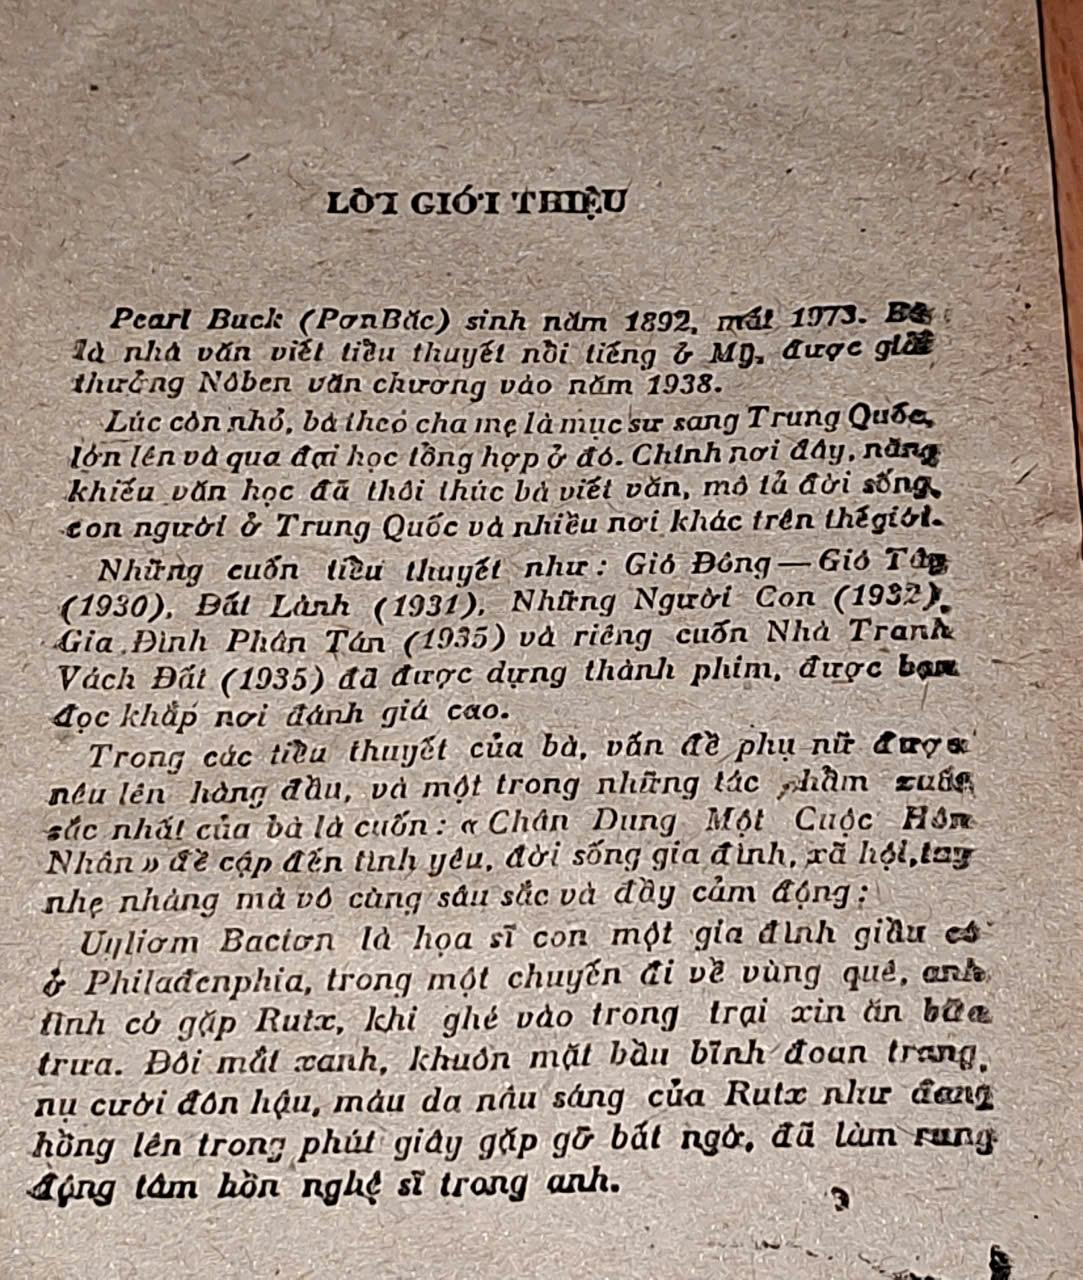 LỜI GIỚI THIỆU
Pearl Buck (PơnBăc) sinh năm 1892, mất 1973. Bà
là nhà văn viết tiểu thuyết nổi tiếng ở Mỹ, được giải
thưởng Nôben văn chương vào năm 1938.
Lúc còn nhỏ, bà theo cha mẹ là mục sư sang Trung Quốc,
lớn lên và qua đại học tổng hợp ở đó. Chính nơi đây, năng
khiếu văn học đã thôi thúc bà viết văn, mô tả đời sống,
con người ở Trung Quốc và nhiều nơi khác trên thế giới.
Những cuốn tiểu thuyết như : Gió Đông — Gió Tây
(1930), Đất Lành (1931), Những Người Con (1932),
Gia Đình Phân Tán (1935) và riêng cuốn Nhà Tranh
Vách Đất (1935) đã được dựng thành phim, được bạn
đọc khắp nơi đánh giá cao.
Trong các tiểu thuyết của bà, vấn đề phụ nữ được
nêu lên hàng đầu, và một trong những tác phẩm xuất
sắc nhất của bà là cuốn : « Chân Dung Một Cuộc Hôn
Nhân » đề cập đến tình yêu, đời sống gia đình, xã hội, tuy
nhẹ nhàng mà vô cùng sâu sắc và đầy cảm động :
Uyliơm Bactơn là họa sĩ con một gia đình giầu có
ở Philađenphia, trong một chuyến đi về vùng quê, anh
tình cờ gặp Rutx, khi ghé vào trong trại xin ăn bữa
trưa. Đôi mắt xanh, khuôn mặt bầu bĩnh đoan trang,
nụ cười đôn hậu, màu da nâu sáng của Rutx như đang
hồng lên trong phút giây gặp gỡ bất ngờ, đã làm rung
động tâm hồn nghệ sĩ trong anh.